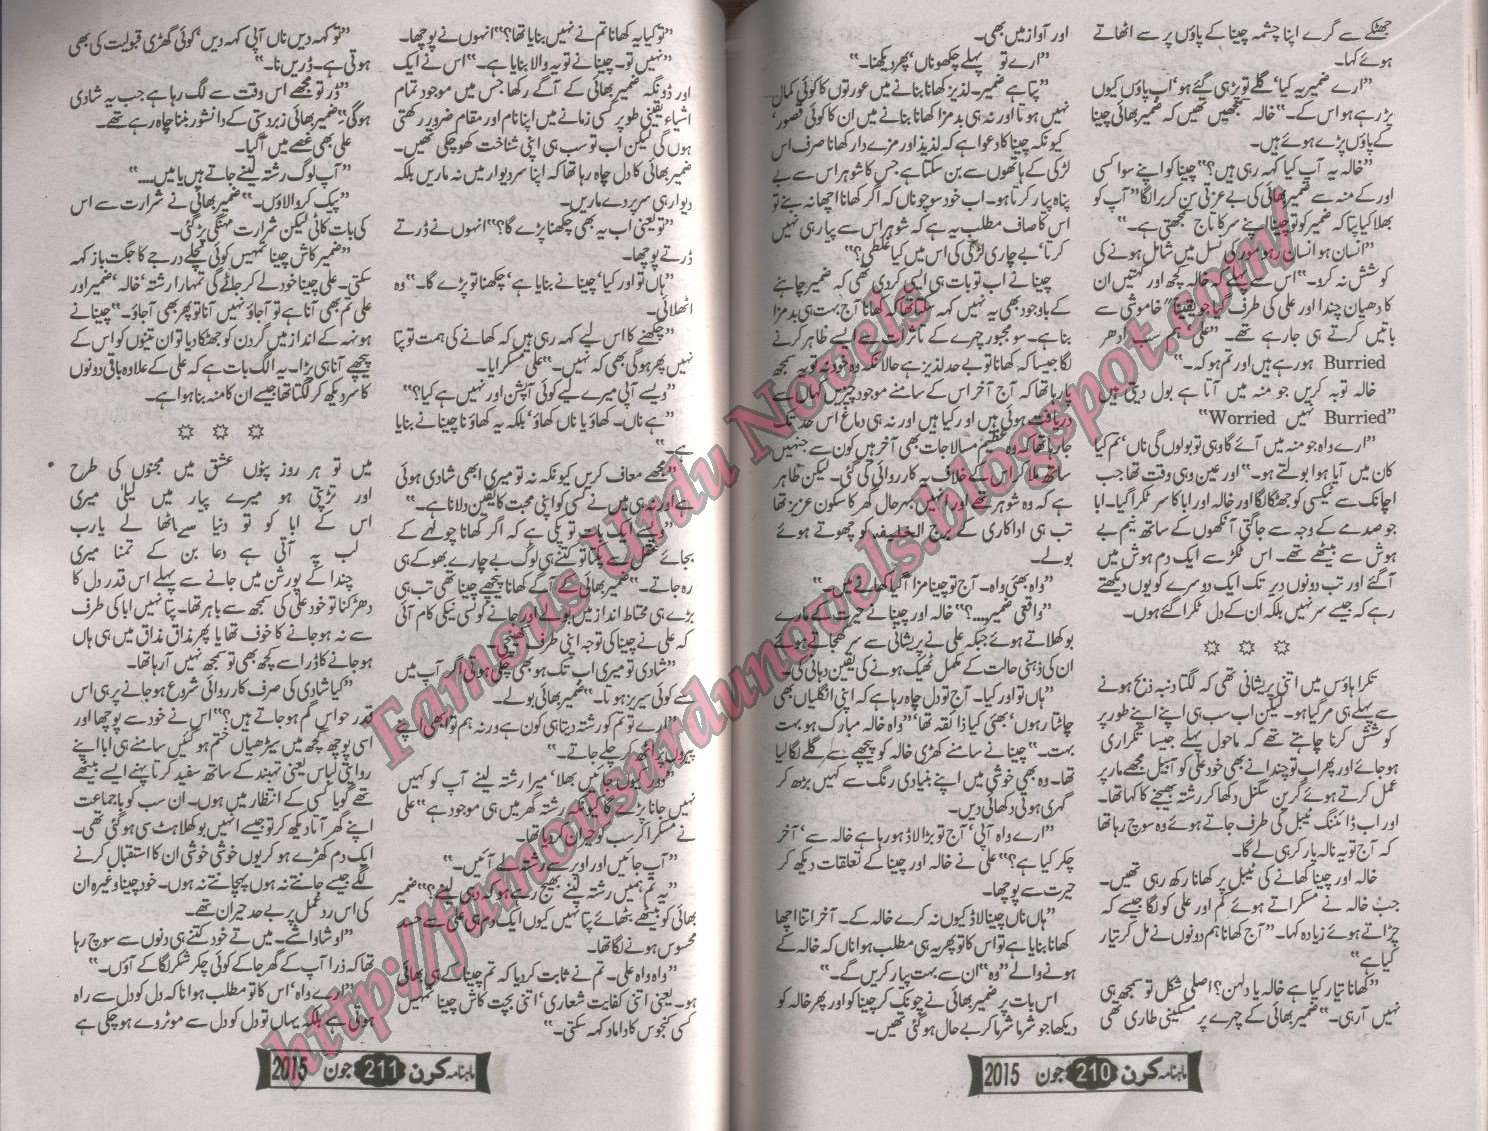 جھٹکے سے گرے اپنا چشمہ چینا کے پاؤں پر سے اٹھاتے
ہوئے کہا۔
”ارے ضمیر یہ کیا‘ گلے تو پڑ ہی گئے ہو‘ اب پاؤں کیوں
پڑ رہے ہو اس کے۔“ خالہ سمجھیں تھیں کہ ضمیر بھائی چینا
کے پاؤں پڑے ہوئے ہیں۔
”خالہ یہ آپ کیا کہہ رہی ہیں؟“ چینا کو اپنے سوا کسی
اور کے منہ سے ضمیر بھائی کی بے عزتی سن کر برا لگا ”آپ کو
بھلا کیا پتا کہ ضمیر کو تو چینا اپنے سر کا تاج سمجھتی ہے۔“
”انسان ہو انسان رہو مور کی نسل میں شامل ہونے کی
کوشش نہ کرو۔“ اس سے پہلے کہ خالہ کچھ اور کہتیں ان
کا دھیان چندا اور علی کی طرف گیا جو یقینا“ خاموشی سے
باتیں کرتے ہی جا رہے تھے۔ ”علی ہم سب ادھر
Burried ہو رہے ہیں اور تم ہو کہ۔“
خالہ توبہ کریں جو منہ میں آتا ہے بول دیتی ہیں
”Burried نہیں Worried“
”ارے واہ جو منہ میں آئے گا وہی تو بولوں گی ناں‘ تم کیا
کان میں آیا ہوا بولتے ہو۔“ اور عین وہی وقت تھا جب
اچانک سے ٹیکسی کو جھٹکا لگا اور خالہ اور ابا کا سر ٹکرا گیا۔ ابا
جو صدمے کے وجہ سے جاگتی آنکھوں کے ساتھ نیم بے
ہوش سے بیٹھے تھے۔ اس ٹکر سے ایک دم ہوش میں
آگئے اور تب دونوں دیر تک ایک دوسرے کو یوں دیکھتے
رہے کہ جیسے سر نہیں بلکہ ان کے دل ٹکرا گئے ہوں۔
☼ ☼ ☼
ٹکرا ہاؤس میں اتنی پریشانی تھی کہ لگتا دنبہ ذبح ہونے
سے پہلے ہی مر گیا ہو۔ لیکن اب سب ہی اپنے اپنے طور پر
کوشش کرنا چاہتے تھے کہ ماحول پہلے جیسا تکراری
ہو جائے اور پھر اب تو چندا نے بھی خود علی کو آبیل مجھے مار پر
عمل کرتے ہوئے گرین سگنل دکھا کر رشتہ بھیجنے کا کہا تھا۔
اور اب ڈائننگ ٹیبل کی طرف جاتے ہوئے وہ سوچ رہا تھا
کہ آج تو یہ نالہ پار کر ہی لے گا۔
خالہ اور چینا کھانے کی ٹیبل پر کھانا رکھ رہی تھیں۔
جب خالہ نے مسکراتے ہوئے کم اور علی کو لگا جیسے کہ
چڑاتے ہوئے زیادہ کہا۔ ”آج کھانا ہم دونوں نے مل کر تیار
کیا ہے“
”کھانا تیار کیا ہے خالہ یا دلہن؟ اصلی شکل تو سمجھ ہی
نہیں آرہی۔“ ضمیر بھائی کے چہرے پر مسکینی طاری تھی
ماہنامہ کرن 210 جون 2015
اور آواز میں بھی۔
”ارے تو پہلے چکھو ناں‘ پھر دیکھنا۔“
”پتا ہے ضمیر۔ لذیز کھانا بنانے میں عورتوں کا کوئی کمال
نہیں ہوتا اور نہ ہی بد مزا کھانا بنانے میں ان کا کوئی قصور‘
کیونکہ چینا کا دعوا ہے کہ لذیذ اور مزے دار کھانا صرف اس
لڑکی کے ہاتھوں سے بن سکتا ہے جس کا شوہر اس سے بے
پناہ پیار کرتا ہو۔ اب خود سوچو ناں کہ اگر کھانا اچھا نہ بنے تو
اس کا صاف مطلب یہ ہے کہ شوہر اس سے پیار ہی نہیں
کرتا‘ بے چاری لڑکی کی اس میں کیا غلطی؟“
چینا نے اب تو بات ہی ایسی کردی تھی کہ ضمیر چاہنے
کے باوجود بھی یہ نہیں کہہ سکتا تھا کہ کھانا آج بہت ہی بد مزا
بنا ہے۔ سو مجبور چہرے کے تاثرات سے ایسے ظاہر کرنے
لگا جیسا کہ کھانا تو بے حد لذیز ہے حالانکہ وہ خود نہ تو یہ سمجھ
پا رہا تھا کہ آج آخر اس کے سامنے موجود چیزیں کہاں سے
دریافت ہوئی ہیں اور کیا ہیں اور نہ ہی دماغ اس حد تک
جا رہا تھا کہ وہ عظیم مسالا جات بھی آخر ہیں کون سے جنہیں
ساتھ ملا کر اس کے خلاف یہ کارروائی کی گئی۔ لیکن ظاہر
ہے کہ وہ شوہر تھے اور انہیں بہرحال گھر کا سکون عزیز تھا
تب ہی اداکاری کے برج الخلیفہ کو چھوتے ہوئے
بولے۔
”واہ بھئی واہ۔ آج تو چینا مزا آگیا کھانے میں۔“
”واقعی ضمیر....؟“ خالہ اور چینا نے حیرت کے مارے
بوکھلاتے ہوئے جبکہ علی نے پریشانی سے سر کھجاتے ہوئے
ان کی ذہنی حالت کے مکمل ٹھیک ہونے کی یقین دہانی کی۔
”ہاں تو اور کیا۔ آج تو دل چاہ رہا ہے کہ اپنی انگلیاں بھی
چاٹتا رہوں‘ بھئی کیا ذائقہ تھا“ ”واہ خالہ مبارک ہو بہت
بہت۔“ چینا نے سامنے کھڑی خالہ کو پیچھے سے گلے لگا لیا
تھا۔ وہ بھی خوشی میں اپنے بنیادی رنگ سے کہیں بڑھ کر
گہری ہوتی دکھائی دیں۔
”ارے واہ آپی‘ آج تو بڑا لاڈ ہو رہا ہے خالہ سے‘ آخر
چکر کیا ہے؟“ علی نے خالہ اور چینا کے تعلقات دیکھ کر
حیرت سے پوچھا۔
”ہاں ناں چینا لاڈ کیوں نہ کرے خالہ کے۔ آخر اتنا اچھا
کھانا بنایا ہے تو اس کا تو پھر یہ ہی مطلب ہوا ناں کہ خالہ کے
ہونے والے ”وہ“ ان سے بہت پیار کریں گے۔“
اس بات پر ضمیر بھائی نے چونک کر چینا کو اور پھر خالہ کو
دیکھا جو شرما شرما کر بے حال ہو گئی تھیں۔
”تو کیا یہ کھانا تم نے نہیں بنایا تھا؟“ انہوں نے پوچھا۔
”نہیں تو۔ چینا نے تو یہ والا بنایا ہے۔“ اس نے ایک
اور ڈونگہ ضمیر بھائی کے آگے رکھا جس میں موجود تمام
اشیاء یقینی طور پر کسی زمانے میں اپنا نام اور مقام ضرور رکھتی
ہوں گی لیکن اب تو سب ہی اپنی شناخت کھو چکی تھیں۔
ضمیر بھائی کا دل چاہ رہا تھا کہ اپنا سر دیوار میں نہ ماریں بلکہ
دیوار ہی سر پر دے ماریں۔
”تو یعنی اب یہ بھی چکھنا پڑے گا؟“ انہوں نے ڈرتے
ڈرتے پوچھا۔
”ہاں تو اور کیا‘ چینا نے بنایا ہے‘ چکھنا تو پڑے گا۔“ وہ
اٹھلائی۔
”چکھنے کا اس لیے کہہ رہی ہیں کہ کھانے کی ہمت تو پتا
نہیں پھر ہوگی بھی کہ نہیں۔“ علی مسکرایا۔
”ویسے آپی میرے لیے کوئی آپشن اور نہیں ہے کیا؟“
”ہے ناں۔ کھاؤ یا ناں کھاؤ‘ بلکہ یہ کھاؤ نا چینا نے بنایا
ہے۔“
”مجھے معاف کریں کیونکہ نہ تو میری ابھی شادی ہوئی
ہے اور نہ ہی میں نے کسی کو اپنی محبت کا یقین دلانا ہے۔“
”ویسے ایک بات تو پکی ہے کہ اگر کھانا چولہے کے
بجائے عقل سے پکتا تو کتنے ہی لوگ بے چارے بھوکے ہی
رہ جاتے۔“ ضمیر بھائی کے آگے کھانا پیچھے چینا تھی تب ہی
بڑے ہی محتاط انداز میں بولے اور جانے کونسی نیکی کام آئی
کہ علی نے چینا کی توجہ اپنی طرف کھینچی۔
”شادی تو میری اب تک ہو بھی چکی ہوتی اگر آپ میں
سے کوئی سیریز ہوتا۔“ ضمیر بھائی بولے۔
”ارے تو تم کو رشتہ دیتا ہی کون ہے ورنہ ہم تو ابھی اپنے
پیروں پر اٹھ کر چلے جاتے۔“
”دور کیوں جائیں بھلا‘ میرا رشتہ لینے آپ کو کہیں
نہیں جانا پڑے گا کیونکہ رشتہ گھر میں ہی موجود ہے“ علی
نے مسکرا کر سب کو حیران کر دیا تھا۔
”آپ جائیں اور اوپر سے رشتہ لے آئیں۔“
”یہ تم ہمیں رشتہ لینے بھیج رہے ہو کہ دہی لینے؟“ ضمیر
بھائی کو بیٹھے بٹھائے پتا نہیں کیوں ایک دم ہی علی سے حسد
محسوس ہونے لگا تھا۔
”واہ واہ علی۔ تم نے ثابت کر دیا کہ تم چینا کے ہی بھائی
ہو۔ یعنی اتنی کفایت شعاری‘ اتنی بچت کاش چینا تمہیں
کسی کنجوس کا داماد کہہ سکتی۔“
”تو کہہ دیں ناں آپی کہہ دیں‘ کوئی گھڑی قبولیت کی بھی
ہوتی ہے۔ ڈریں نا۔“
”ڈر تو مجھے اس وقت سے لگ رہا ہے جب یہ شادی
ہوگی“ ضمیر بھائی زبردستی کے دانشور بننا چاہ رہے تھے۔
علی بھی غصے میں آگیا۔
”آپ لوگ رشتہ لینے جاتے ہیں یا میں....“
”پیک کروا لاؤں۔“ ضمیر بھائی نے شرارت سے اس
کی بات کاٹی لیکن شرارت مہنگی پڑ گئی۔
”ضمیر کاش چینا تمہیں کوئی نچلے درجے کا جگت باز کہہ
سکتی۔ علی چینا خود لے کر جائے گی تمہارا رشتہ‘ خالہ‘ ضمیر اور
علی تم بھی آنا ہے تو آجاؤ نہیں آنا تو پھر بھی آجاؤ۔“ چینا نے
ہونہہ کے انداز میں گردن کو جھٹکا دیا تو ان تینوں کو اس کے
پیچھے آنا ہی پڑا۔ یہ الگ بات ہے کہ علی کے علاوہ باقی دونوں
کا سر دیکھ کر لگتا تھا جیسے ان کا منہ بنا ہوا ہے۔
☼ ☼ ☼
میں تو ہر روز پٹوں عشق میں مجنوں کی طرح
اور تڑپتی ہو میرے پیار میں لیلیٰ میری
اس کے ابا کو تو دنیا سے اٹھا لے یارب
لب پہ آتی ہے دعا بن کے تمنا میری
چندا کے پورشن میں جانے سے پہلے اس قدر دل کا
دھڑکنا تو خود علی کی سمجھ سے باہر تھا۔ پتا نہیں ابا کی طرف
سے نہ ہو جانے کا خوف تھا یا پھر مذاق مذاق میں ہی ہاں
ہو جانے کا ڈر اسے کچھ بھی تو سمجھ نہیں آرہا تھا۔
”کیا شادی کی صرف کارروائی شروع ہو جانے پر ہی اس
قدر حواس گم ہو جاتے ہیں؟“ اس نے خود سے پوچھا اور
اسی پوچھ گچھ میں سیڑھیاں ختم ہو گئیں سامنے ہی ابا اپنے
روایتی لباس یعنی تہبند کے ساتھ سفید کرتا پہنے ایسے بیٹھے
تھے گویا کسی کے انتظار میں ہوں۔ ان سب کو باجماعت
اپنے گھر آتا دیکھ کر تو جیسے انہیں بوکھلاہٹ سی ہو گئی تھی۔
ایک دم کھڑے ہو کر یوں خوشی خوشی ان کا استقبال کرنے
لگے جیسے جانتے نہ ہوں پہچانتے نہ ہوں۔ خود چینا وغیرہ ان
کی اس رد عمل پر بے حد حیران تھے۔
”اوشاوا شے۔ میں تے خود کتنے ہی دنوں سے سوچ رہا
تھا کہ ذرا آپ کے گھر جا کے کوئی چکر شکر لگا کے آؤں۔“
”ارے واہ‘ اس کا تو مطلب ہوا نا کہ دل کو دل سے راہ
ہوتی ہے بلکہ یہاں تو دل کو دل سے موٹروے ہو چکی ہے
ماہنامہ کرن 211 جون 2015
Famous Urdu Novels
http://famousurdunovels.blogspot.com/